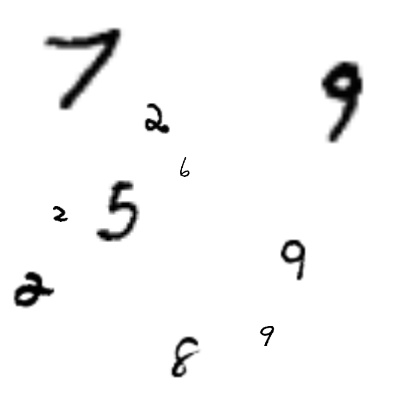 7
9
2
6
2
5
9
2
9
8